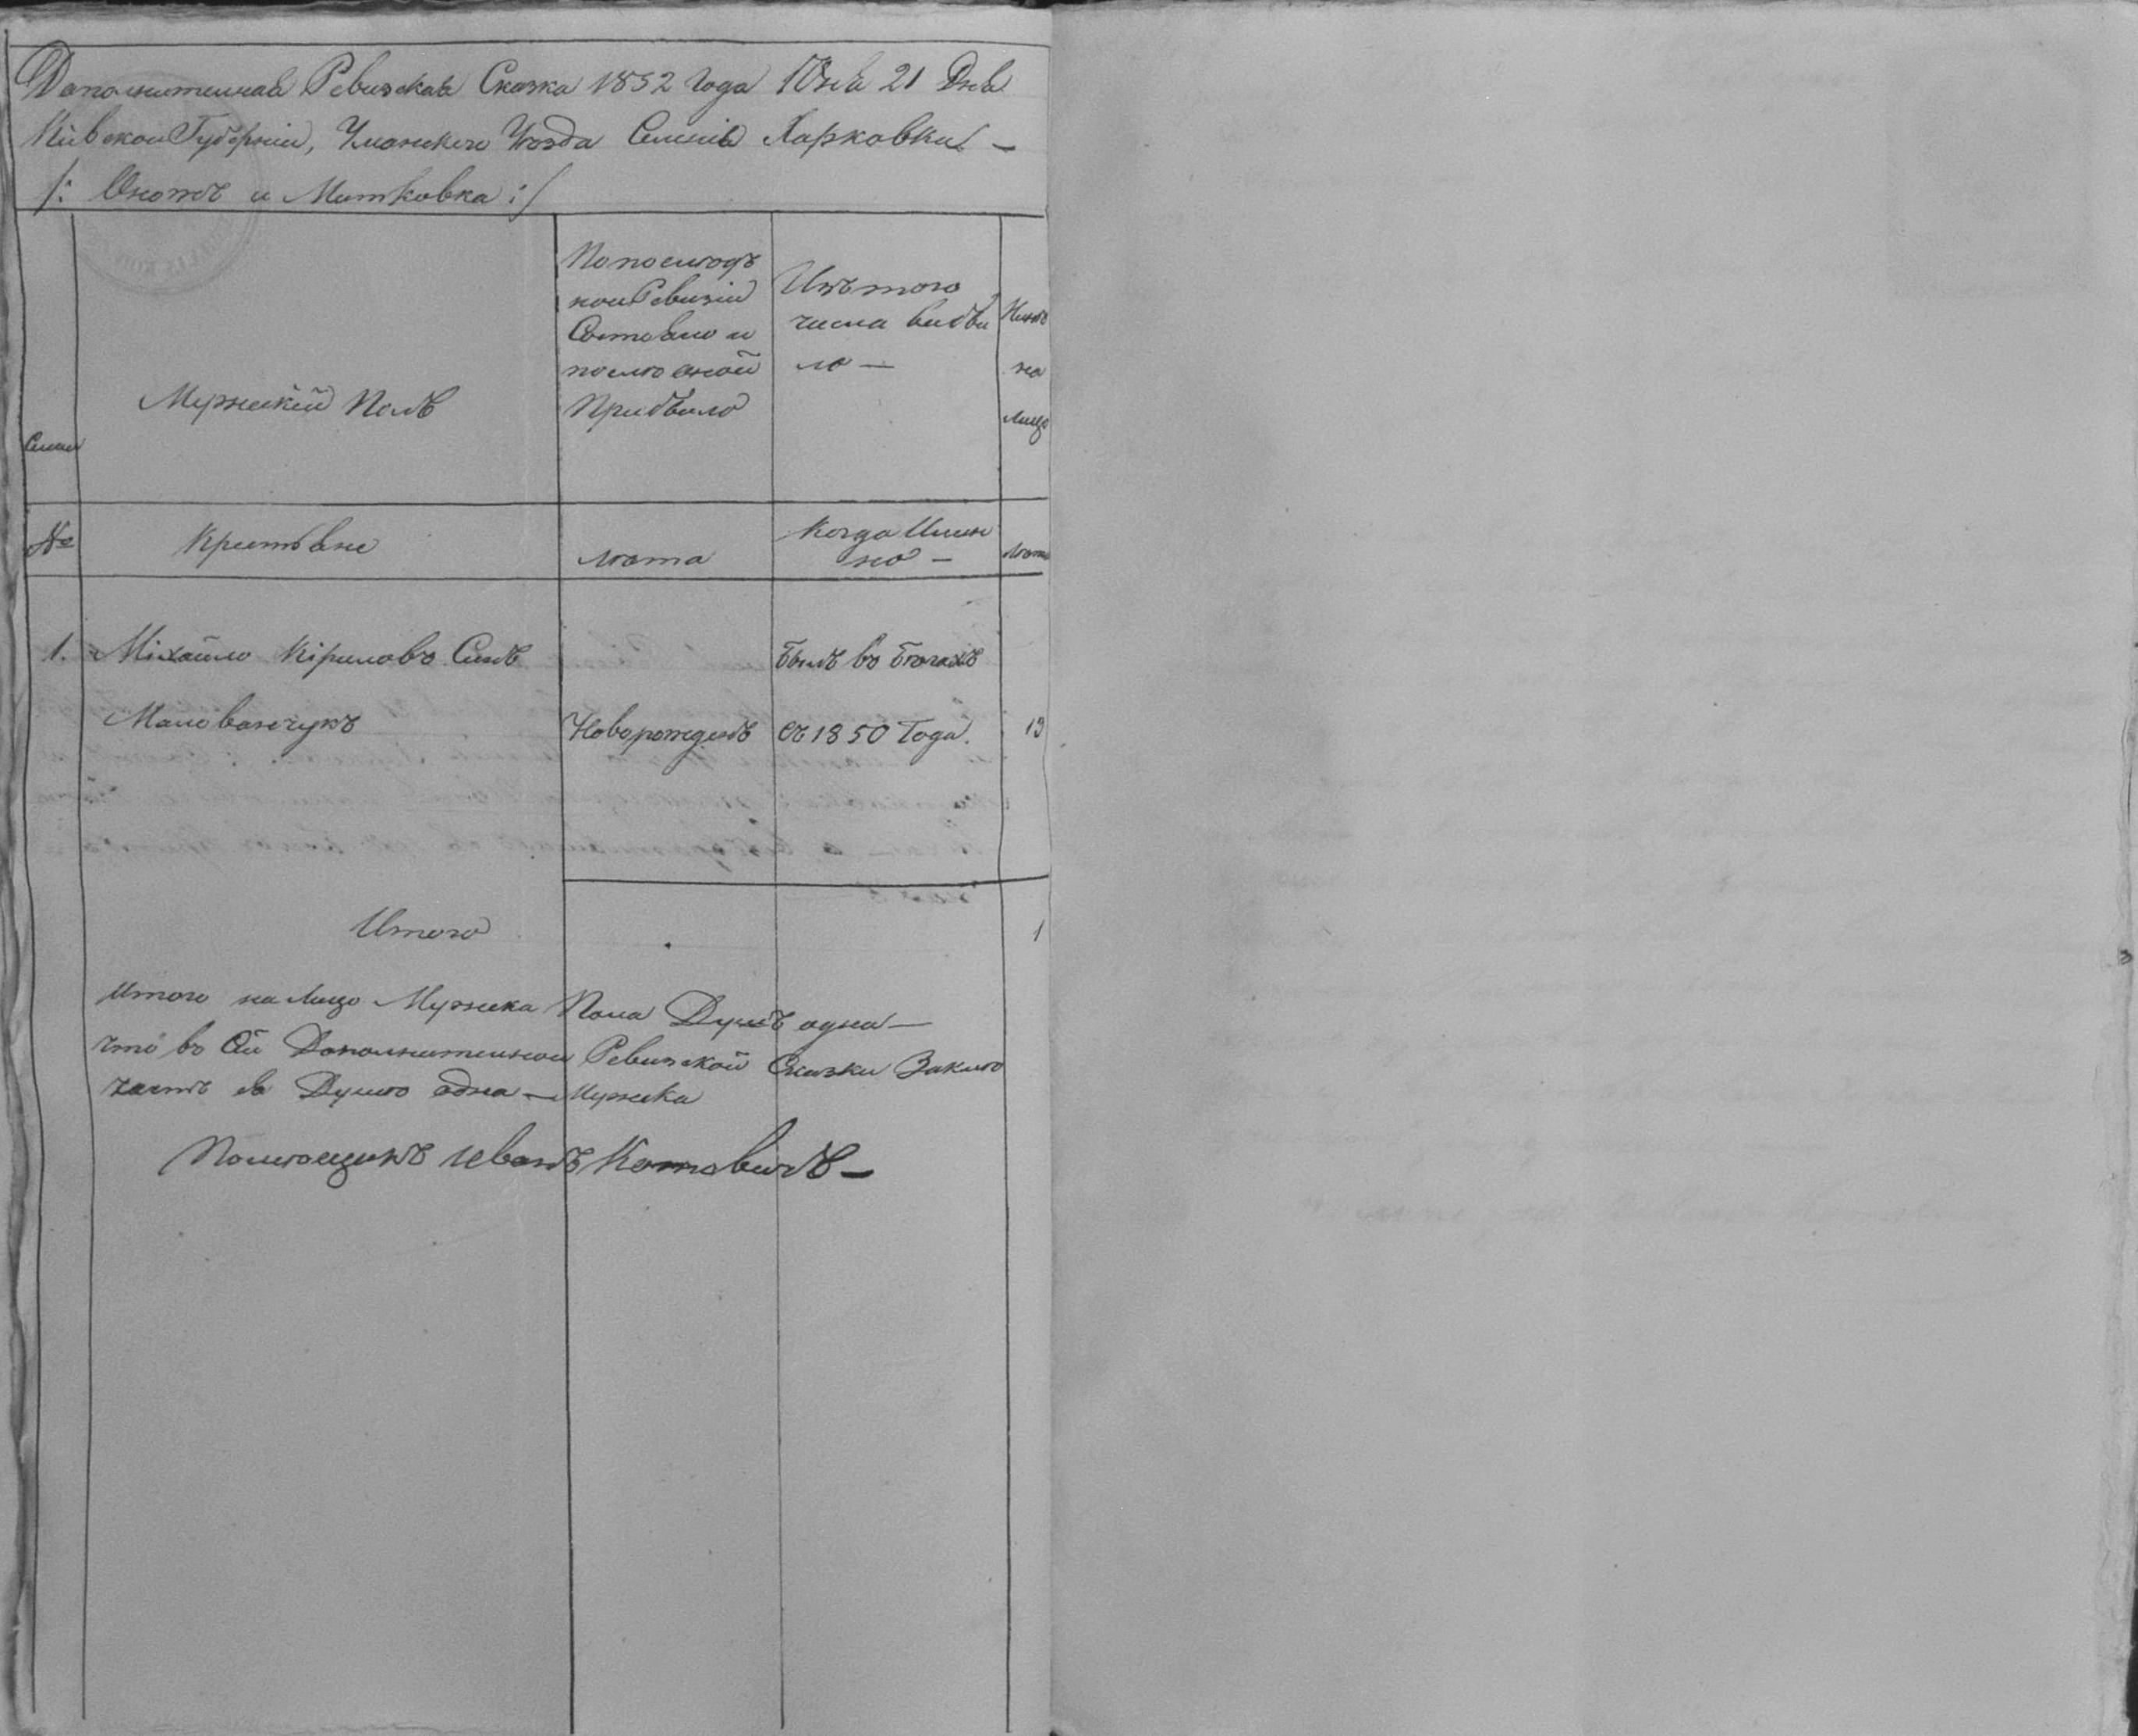 Дополнителная Ревизская Сказка 1852 Года Юня 21 Дня
Киівской Губерніи, Уманскаго Уѣзда Селенія Харковки —
/: Оножъ и Митковка :/
Семьи
Мужескій Полъ
По послѣд
ной Ревизіи
Состояло и
послѣ оной
Прибыло
Изъ того
числа выбы
ло —
Нынѣ
на
Лицо
№
Крестьяне
Лѣта
Когда Имен
но —
Лѣта
1. Міхайло Кіриловъ Синъ
Былъ въ Бѣгахъ
Малованчукъ
Новорожденъ
съ 1850 Года.
13
Итого
1
Итого на Лицо Мужеска Пола Душъ одна —
что въ Сей Дополнителной Ревизской Сказки Заклю
чаетъ ся Душѣ одна — Мужеска
Помѣщикъ Иванъ